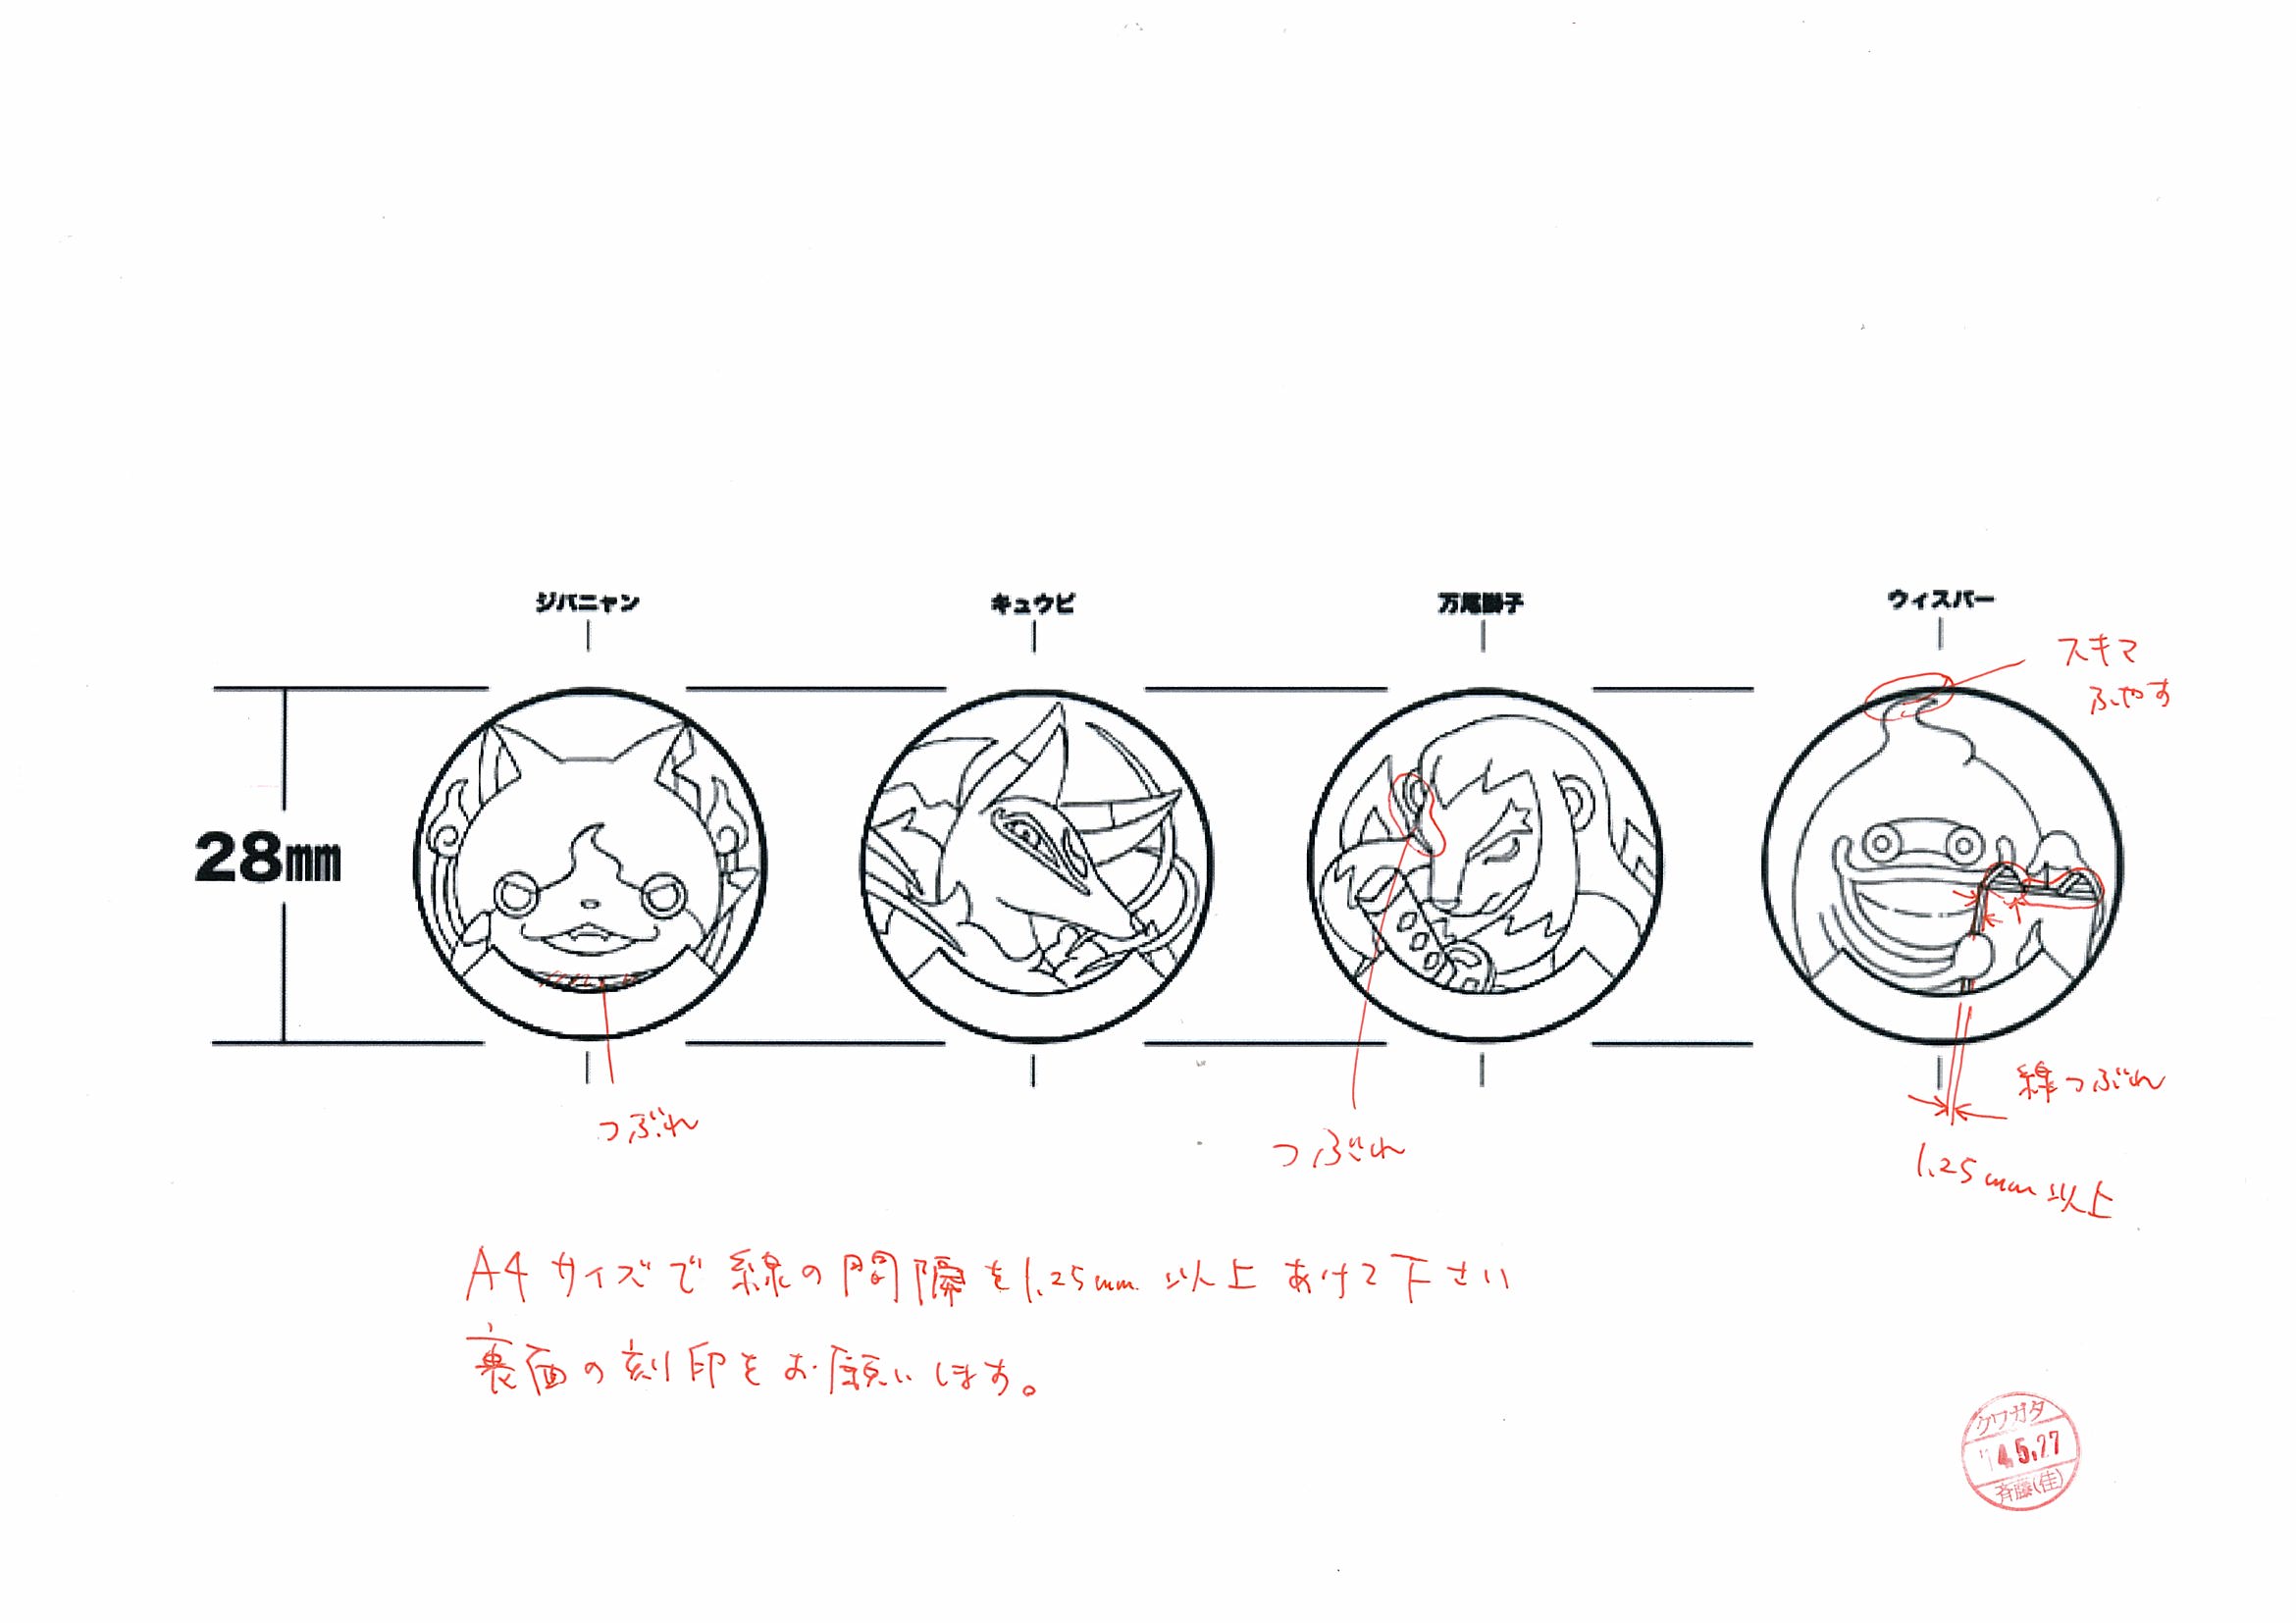 ジバニャン
キュウビ
万尾獅子
ウィスパー
スキマ
ふやす
28mm
つぶれ
つぶれ
線つぶれ
1.25mm以上
A4サイズで線の間隔を1.25mm以上あけて下さい
裏面の刻印をお願いします。
クワガタ
'14.5.27
斉藤(佳)